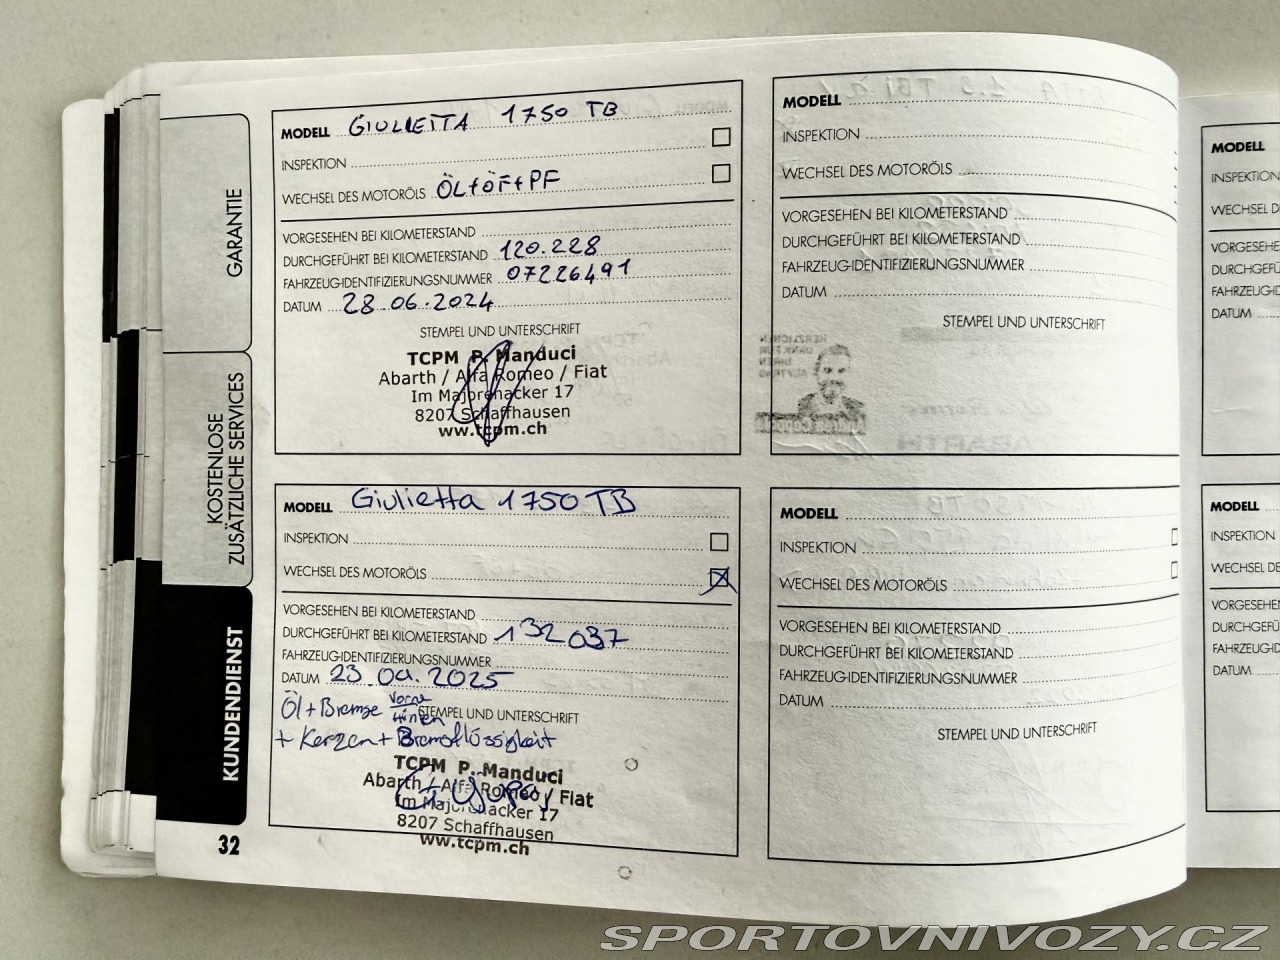 GARANTIE
KOSTENLOSE
ZUSÄTZLICHE SERVICES
KUNDENDIENST
32
MODELL GIULIETTA 1750 TB
INSPEKTION
WECHSEL DES MOTORÖLS ÖL+ÖF+PF
VORGESEHEN BEI KILOMETERSTAND
DURCHGEFÜHRT BEI KILOMETERSTAND 120.228
FAHRZEUG-IDENTIFIZIERUNGSNUMMER 07226491
DATUM 28.06.2024
STEMPEL UND UNTERSCHRIFT
TCPM P. Manduci
Abarth / Alfa Romeo / Fiat
Im Majorenacker 17
8207 Schaffhausen
ww.tcpm.ch
MODELL Giulietta 1750 TB
INSPEKTION
WECHSEL DES MOTORÖLS
VORGESEHEN BEI KILOMETERSTAND
DURCHGEFÜHRT BEI KILOMETERSTAND 132037
FAHRZEUG-IDENTIFIZIERUNGSNUMMER
DATUM 23.09.2025
Öl+Bremse Vorne
Hinten STEMPEL UND UNTERSCHRIFT
+ Kerzen + Bremsflüssigkeit
TCPM P. Manduci
Abarth / Alfa Romeo / Fiat
Im Majorenacker 17
8207 Schaffhausen
www.tcpm.ch
MODELL
INSPEKTION
WECHSEL DES MOTORÖLS
VORGESEHEN BEI KILOMETERSTAND
DURCHGEFÜHRT BEI KILOMETERSTAND
FAHRZEUG-IDENTIFIZIERUNGSNUMMER
DATUM
STEMPEL UND UNTERSCHRIFT
MODELL
INSPEKTION
WECHSEL DES MOTORÖLS
VORGESEHEN BEI KILOMETERSTAND
DURCHGEFÜHRT BEI KILOMETERSTAND
FAHRZEUG-IDENTIFIZIERUNGSNUMMER
DATUM
STEMPEL UND UNTERSCHRIFT
MODELL
INSPEKTION
WECHSEL D
VORGESEHE
DURCHGEFÜ
FAHRZEUG-ID
DATUM
MODELL
INSPEKTION
WECHSEL DE
VORGESEHEN
DURCHGEFÜ
FAHRZEUG-ID
DATUM
SPORTOVNIVOZY.CZ